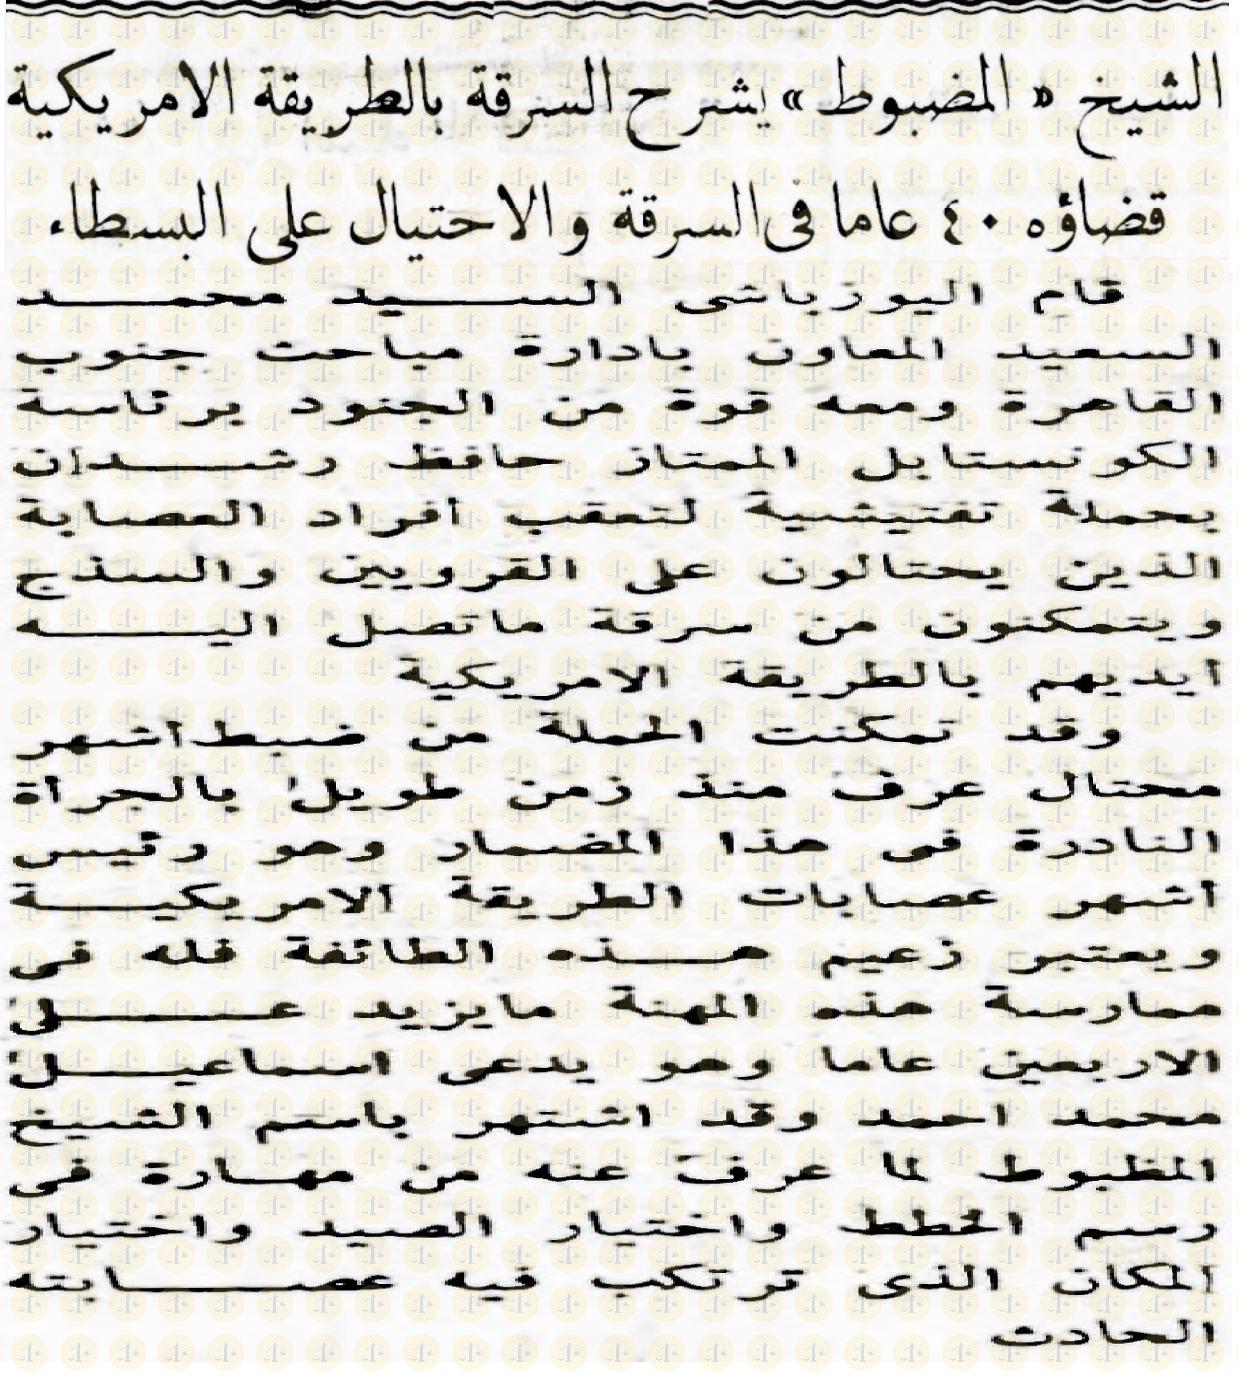 الشيخ « المضبوط » يشرح السرقة بالطريقة الامريكية
قضاؤه ٤٠ عاما فى السرقة والاحتيال على البسطاء
قام اليوزباشى السيد محمد
السعيد المعاون بادارة مباحث جنوب
القاهرة ومعه قوة من الجنود برئاسة
الكونستابل الممتاز حافظ رشدان
بحملة تفتيشية لتعقب أفراد العصابة
الذين يحتالون على القرويين والسذج
ويتمكنون من سرقة ماتصل اليه
أيديهم بالطريقة الامريكية
وقد تمكنت الحملة من ضبط أشهر
محتال عرف منذ زمن طويل بالجرأة
النادرة فى هذا المضمار وهو رئيس
أشهر عصابات الطريقة الامريكية
ويعتبر زعيم هذه الطائفة فله فى
ممارسة هذه المهنة مايزيد على
الاربعين عاما وهو يدعى اسماعيل
محمد احمد وقد اشتهر باسم الشيخ
المظبوط لما عرف عنه من مهارة فى
رسم الخطط واختيار الصيد واختيار
المكان الذى ترتكب فيه عصابته
الحادث